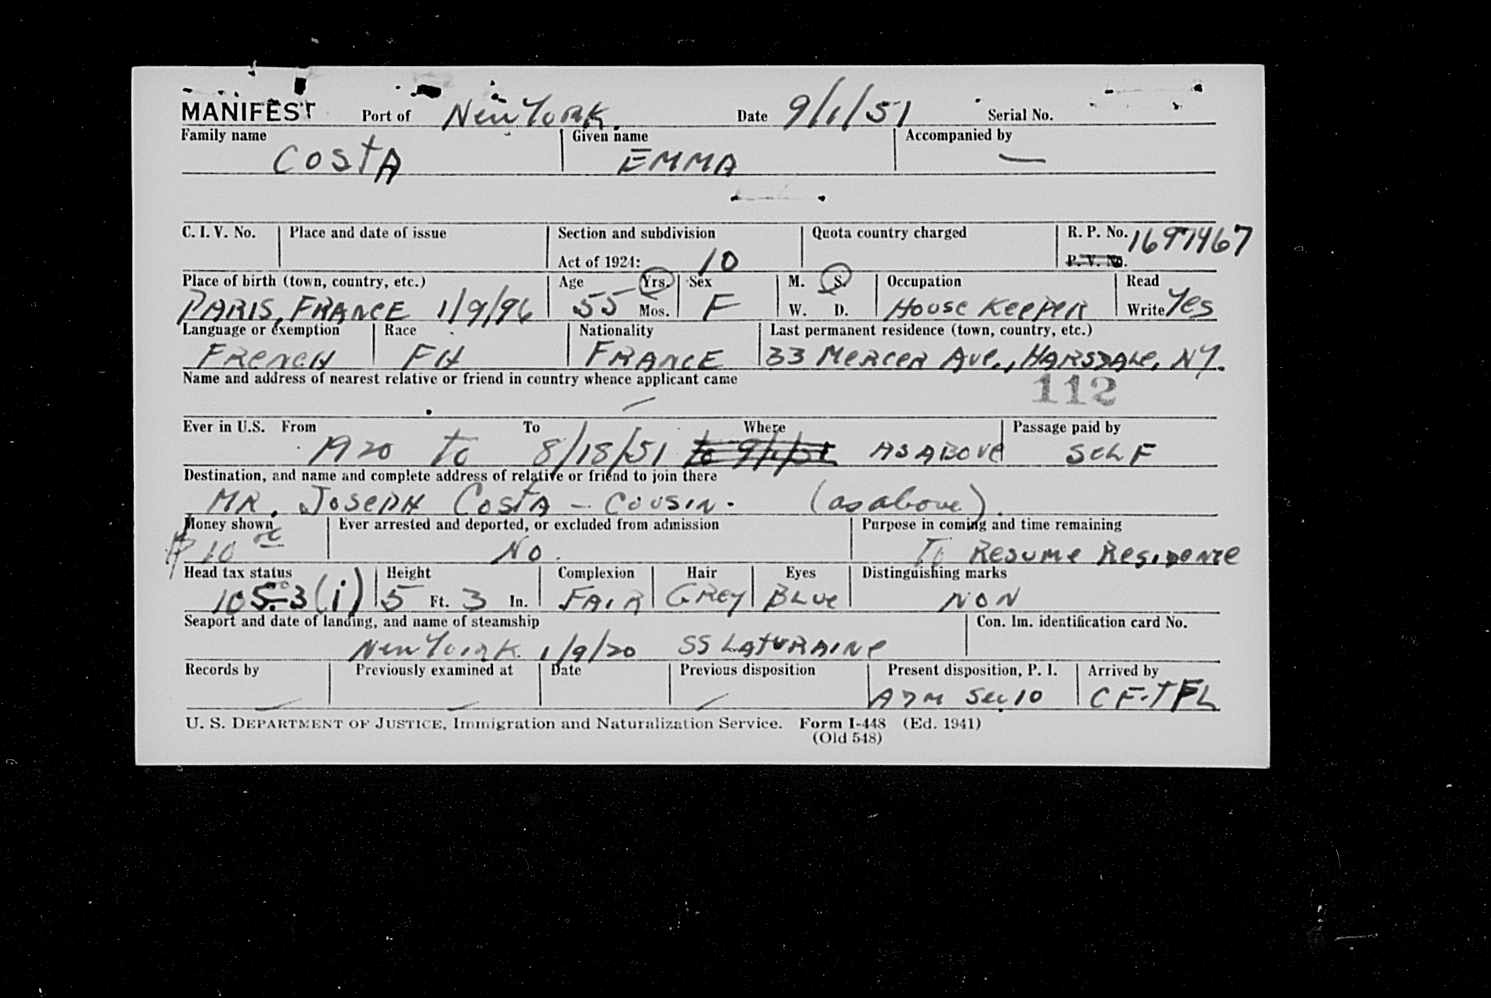 MANIFEST Port of New York. Date 9/1/51 Serial No.
Family name Given name Accompanied by
COSTA EMMA —
C. I. V. No. Place and date of issue Section and subdivision Quota country charged R. P. No. 1697467
Act of 1924: 10 P. V. No.
Place of birth (town, country, etc.) Age Yrs. Sex M. S. Occupation Read
PARIS, FRANCE 1/9/96 55 Mos. F W. D. House Keeper Write Yes
Language or exemption Race Nationality Last permanent residence (town, country, etc.)
FRENCH FH FRANCE 33 Mercer Ave., HARSDALE, NY.
Name and address of nearest relative or friend in country whence applicant came 112
—
Ever in U.S. From To Where Passage paid by
1920 to 8/18/51 to 9/1/51 AS ABOVE SELF
Destination, and name and complete address of relative or friend to join there
MR. JOSEPH COSTA - COUSIN. (as above)
Money shown Ever arrested and deported, or excluded from admission Purpose in coming and time remaining
$10 00 No. To Resume Residence
Head tax status Height Complexion Hair Eyes Distinguishing marks
105.3(i) 5 Ft. 3 In. FAIR GREY BLUE NON
Seaport and date of landing, and name of steamship Con. Im. identification card No.
New York 1/9/20 SS LATURAINE
Records by Previously examined at Date Previous disposition Present disposition, P. I. Arrived by
— — — ADM Sec 10 CF-TFL
U. S. DEPARTMENT OF JUSTICE, Immigration and Naturalization Service. Form I-448 (Ed. 1941)
(Old 548)